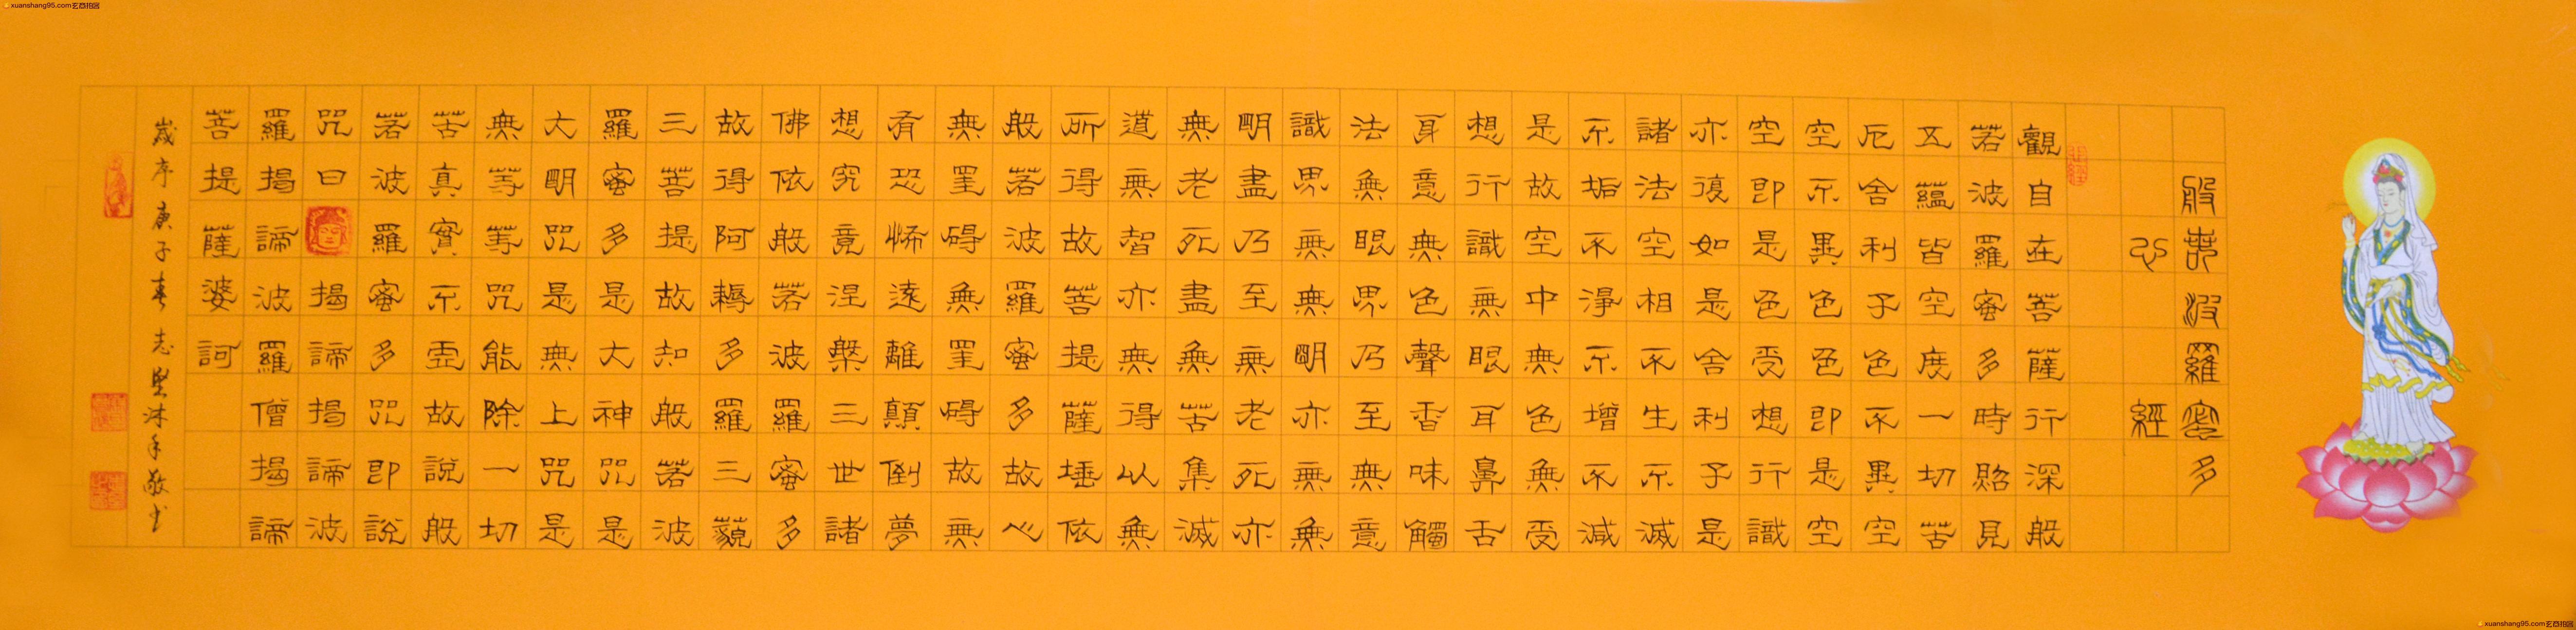 般若波羅蜜多
心經
觀自在菩薩行深般
若波羅蜜多時照見
五蘊皆空度一切苦
厄舍利子色不異空
空不異色色即是空
空即是色受想行識
亦復如是舍利子是
諸法空相不生不滅
不垢不淨不增不減
是故空中無色無受
想行識無眼耳鼻舌
身意無色聲香味觸
法無眼界乃至無意
識界無無明亦無無
明盡乃至無老死亦
無老死盡無苦集滅
道無智亦無得以無
所得故菩提薩埵依
般若波羅蜜多故心
無罣碍無罣碍故無
有恐怖遠離顛倒夢
想究竟涅槃三世諸
佛依般若波羅蜜多
故得阿耨多羅三藐
三菩提故知般若波
羅蜜多是大神咒是
大明咒是無上咒是
無等等咒能除一切
苦真實不虛故說般
若波羅蜜多咒即說
咒曰揭諦揭諦波
羅揭諦波羅僧揭諦
菩提薩婆訶
歲序庚子春志堅沐手敬書
xuanshang95.com
xuanshang95.com